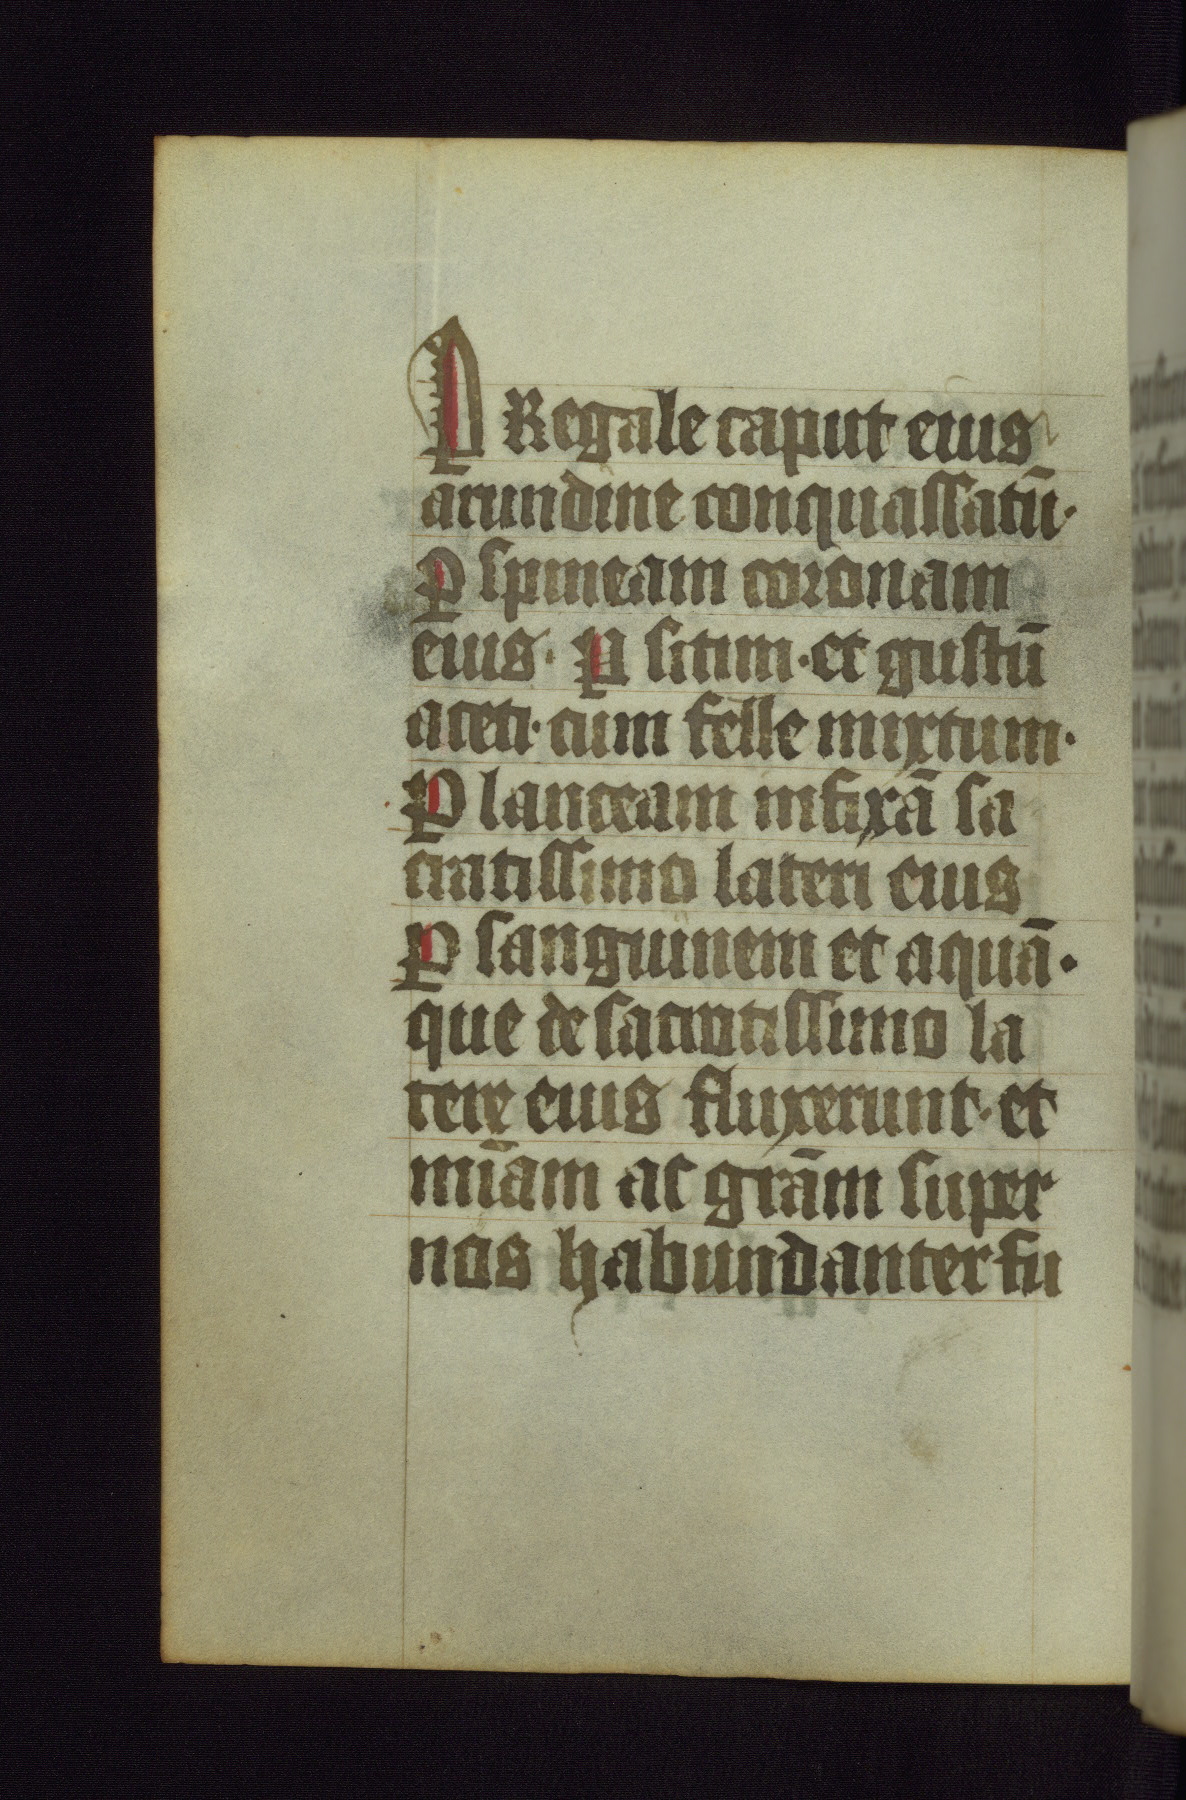 P Regale caput eius
arundine conquassatū·
P spineam coronam
eius· P sitim·et gustū
aceti·cum felle mixtum·
P lanceam infixā sa
cratissimo lateri eius
P sanguinem et aquā·
que de sacratissimo la
tere eius fluxerunt·et
mīam ac grām super
nos habundanter fu